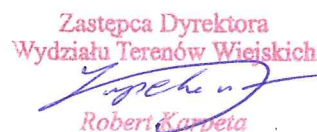 Zastępca Dyrektora
Wydziału Terenów Wiejskich
Robert Karpeta